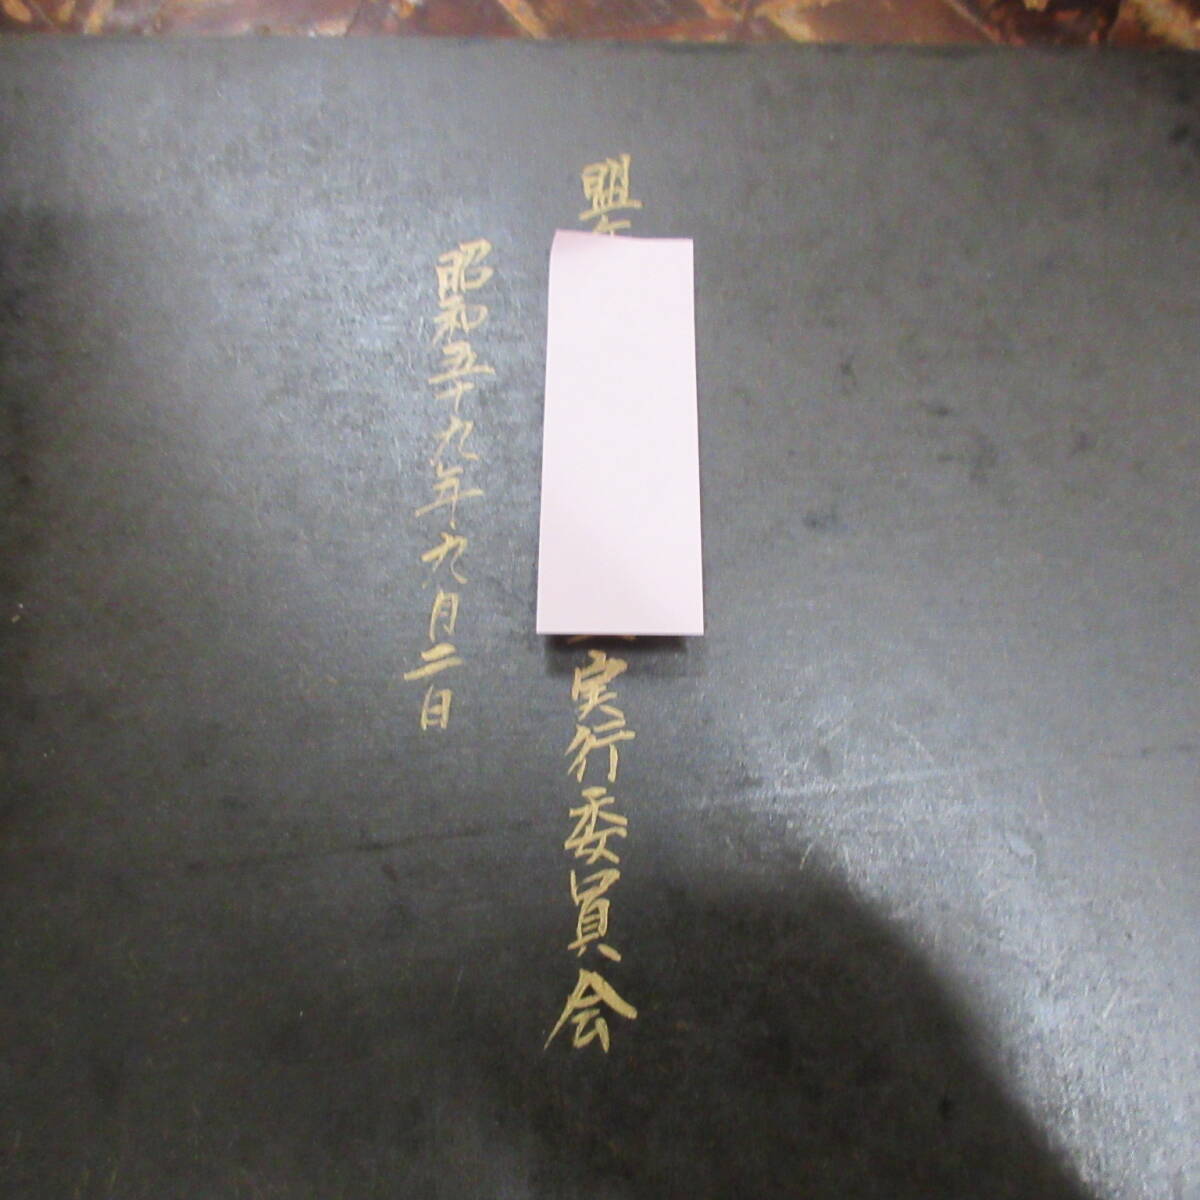 盟
実行委員会
昭和五十九年九月二日